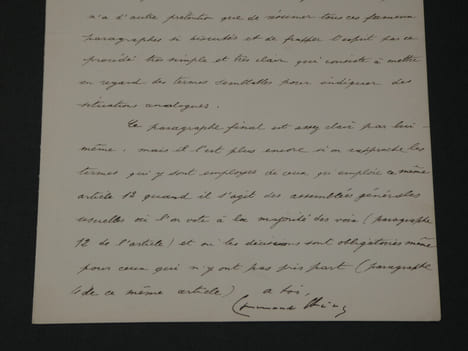 n'a d'autre prétention que de résumer tous ces fameux
paragraphes si discutés et de frapper l'esprit par ce
procédé très simple et très clair qui consiste à mettre
en regard des termes semblables pour indiquer des
situations analogues.
Ce paragraphe final est assez clair par lui-
même, mais il l'est plus encore si on rapproche les
termes qui y sont employés de ceux qu'emploie ce même
article 13 quand il s'agit des assemblées générales
usuelles où l'on vote à la majorité des voix (paragraphe
12 de l'article) et où les décisions sont obligatoires même
pour ceux qui n'y ont pas pris part (paragraphe
de ce même article) à toi,